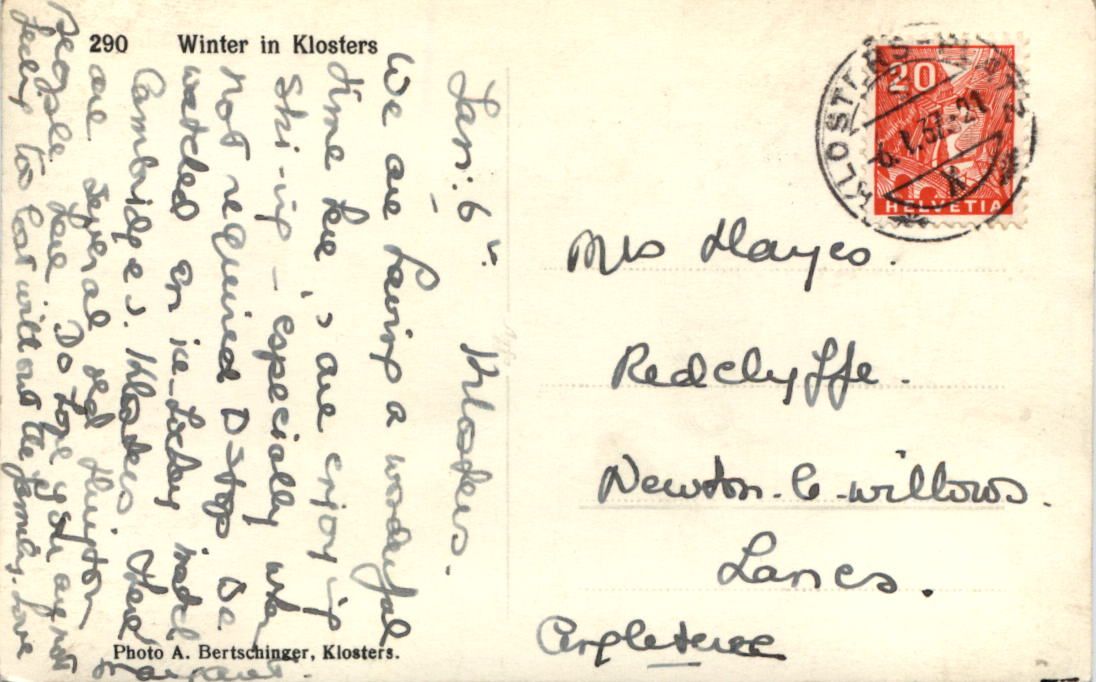 290 Winter in Klosters
Jan: 6th. Klosters.
We are having a wonderful
time here, & are enjoying
Ski-ing – especially when
not required to stop. We
watched an ice-hockey match
Cambridge v. Klosters. There
are several old
people here. Do hope you are not
feeling too lost without the family. Love
Margaret.
Photo A. Bertschinger, Klosters.
KLOSTERS
6.I.37.-21
20
HELVETIA
Mrs Hayes.
Redclyffe.
Newton-le-willows.
Lancs.
Angleterre